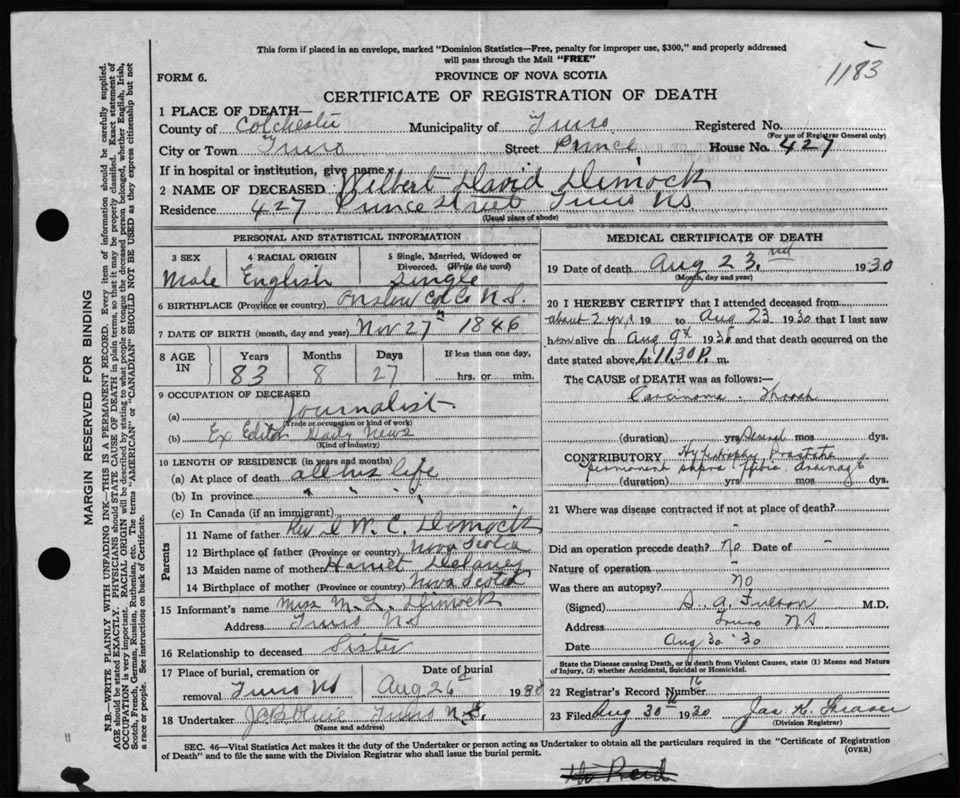 This form if placed in an envelope, marked "Dominion Statistics—Free, penalty for improper use, $300," and properly addressed
will pass through the Mail "FREE"
1183
FORM 6.
PROVINCE OF NOVA SCOTIA
CERTIFICATE OF REGISTRATION OF DEATH
1 PLACE OF DEATH—
County of Colchester Municipality of Truro Registered No.
(For use of Registrar General only)
City or Town Truro Street Prince House No. 427
If in hospital or institution, give name
2 NAME OF DECEASED Wilbert David Dimock
Residence 427 Prince Street Truro NS
(Usual place of abode)
PERSONAL AND STATISTICAL INFORMATION
3 SEX 4 RACIAL ORIGIN 5 Single, Married, Widowed or
Divorced. (Write the word)
Male English Single
6 BIRTHPLACE (Province or country) Onslow Col. Co N.S.
7 DATE OF BIRTH (month, day and year) Nov 27th 1846
8 AGE IN Years Months Days If less than one day,
83 8 27 hrs. or min.
9 OCCUPATION OF DECEASED
(a) Journalist
(Trade or occupation or kind of work)
(b) Ex Editor Daily News
(Kind of industry)
10 LENGTH OF RESIDENCE (in years and months)
(a) At place of death all his life
(b) In province " " "
(c) In Canada (if an immigrant)
Parents
11 Name of father Rev D. W. C. Dimock
12 Birthplace of father (Province or country) Nova Scotia
13 Maiden name of mother Harriet Delaney
14 Birthplace of mother (Province or country) Nova Scotia
15 Informant's name Miss M. L. Dimock
Address Truro NS
16 Relationship to deceased Sister
17 Place of burial, cremation or Date of burial
removal Truro NS Aug 26th 1930
18 Undertaker Truro N.S.
(Name and address)
MEDICAL CERTIFICATE OF DEATH
19 Date of death Aug 23rd 1930
(Month, day and year)
20 I HEREBY CERTIFY that I attended deceased from
about 2 yrs 19 to Aug 23 1930 that I last saw
him alive on Aug 9th 1930 and that death occurred on the
date stated above at 11.30 P. m.
The CAUSE OF DEATH was as follows:—
Carcinoma Throat
(duration) yrs. Several mos dys.
CONTRIBUTORY Hypertrophy Prostate
permanent supra pubic drainage
(duration) yrs mos dys.
21 Where was disease contracted if not at place of death?
-
Did an operation precede death? No Date of -
Nature of operation -
Was there an autopsy? No
(Signed) D. A. Fulton M.D.
Address Truro N.S.
Date Aug 30 '30
State the Disease causing Death, or in death from Violent Causes, state (1) Means and Nature
of Injury, (2) whether Accidental, Suicidal or Homicidal.
22 Registrar's Record Number 16
23 Filed Aug 30th 1930 Jas. K. Fraser
(Division Registrar)
SEC. 46—Vital Statistics Act makes it the duty of the Undertaker or person acting as Undertaker to obtain all the particulars required in the "Certificate of Registration
of Death" and to file the same with the Division Registrar who shall issue the burial permit. (OVER)
MARGIN RESERVED FOR BINDING
N.B.—WRITE PLAINLY WITH UNFADING INK—THIS IS A PERMANENT RECORD. Every item of information should be carefully supplied.
AGE should be stated EXACTLY. PHYSICIANS should STATE CAUSE OF DEATH in plain terms, so that it may be properly classified. Exact statement of
OCCUPATION is very important. RACIAL ORIGIN will be described by stating to what people or tongue the deceased person belonged, whether English, Irish,
Scotch, French, German, Russian, Ruthenian, etc. The terms "AMERICAN" or "CANADIAN" SHOULD NOT BE USED as they express citizenship but not
a race or people. See instructions on back of Certificate.